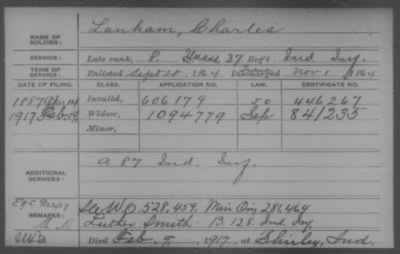 NAME OF SOLDIER: Lanham, Charles
SERVICE: Late rank, P. Unass 37 Regt. Ind Inf.
TERM OF SERVICE: Enlisted Sept 20, 1864 Discharged Nov 1, 1864
DATE OF FILING. CLASS. APPLICATION NO. LAW. CERTIFICATE NO.
1887 Apr 14 Invalid, 606179 446267
1917 Feb 19 Widow, 1094779 Sep 841235
Minor,
ADDITIONAL SERVICES: A 87 Ind. Inf.
REMARKS: WO 528,459. Min Orig 281,464
Luther Smith - B 128. Ind Inf
Died Feb. 9, 1917, at Shirley, Ind.